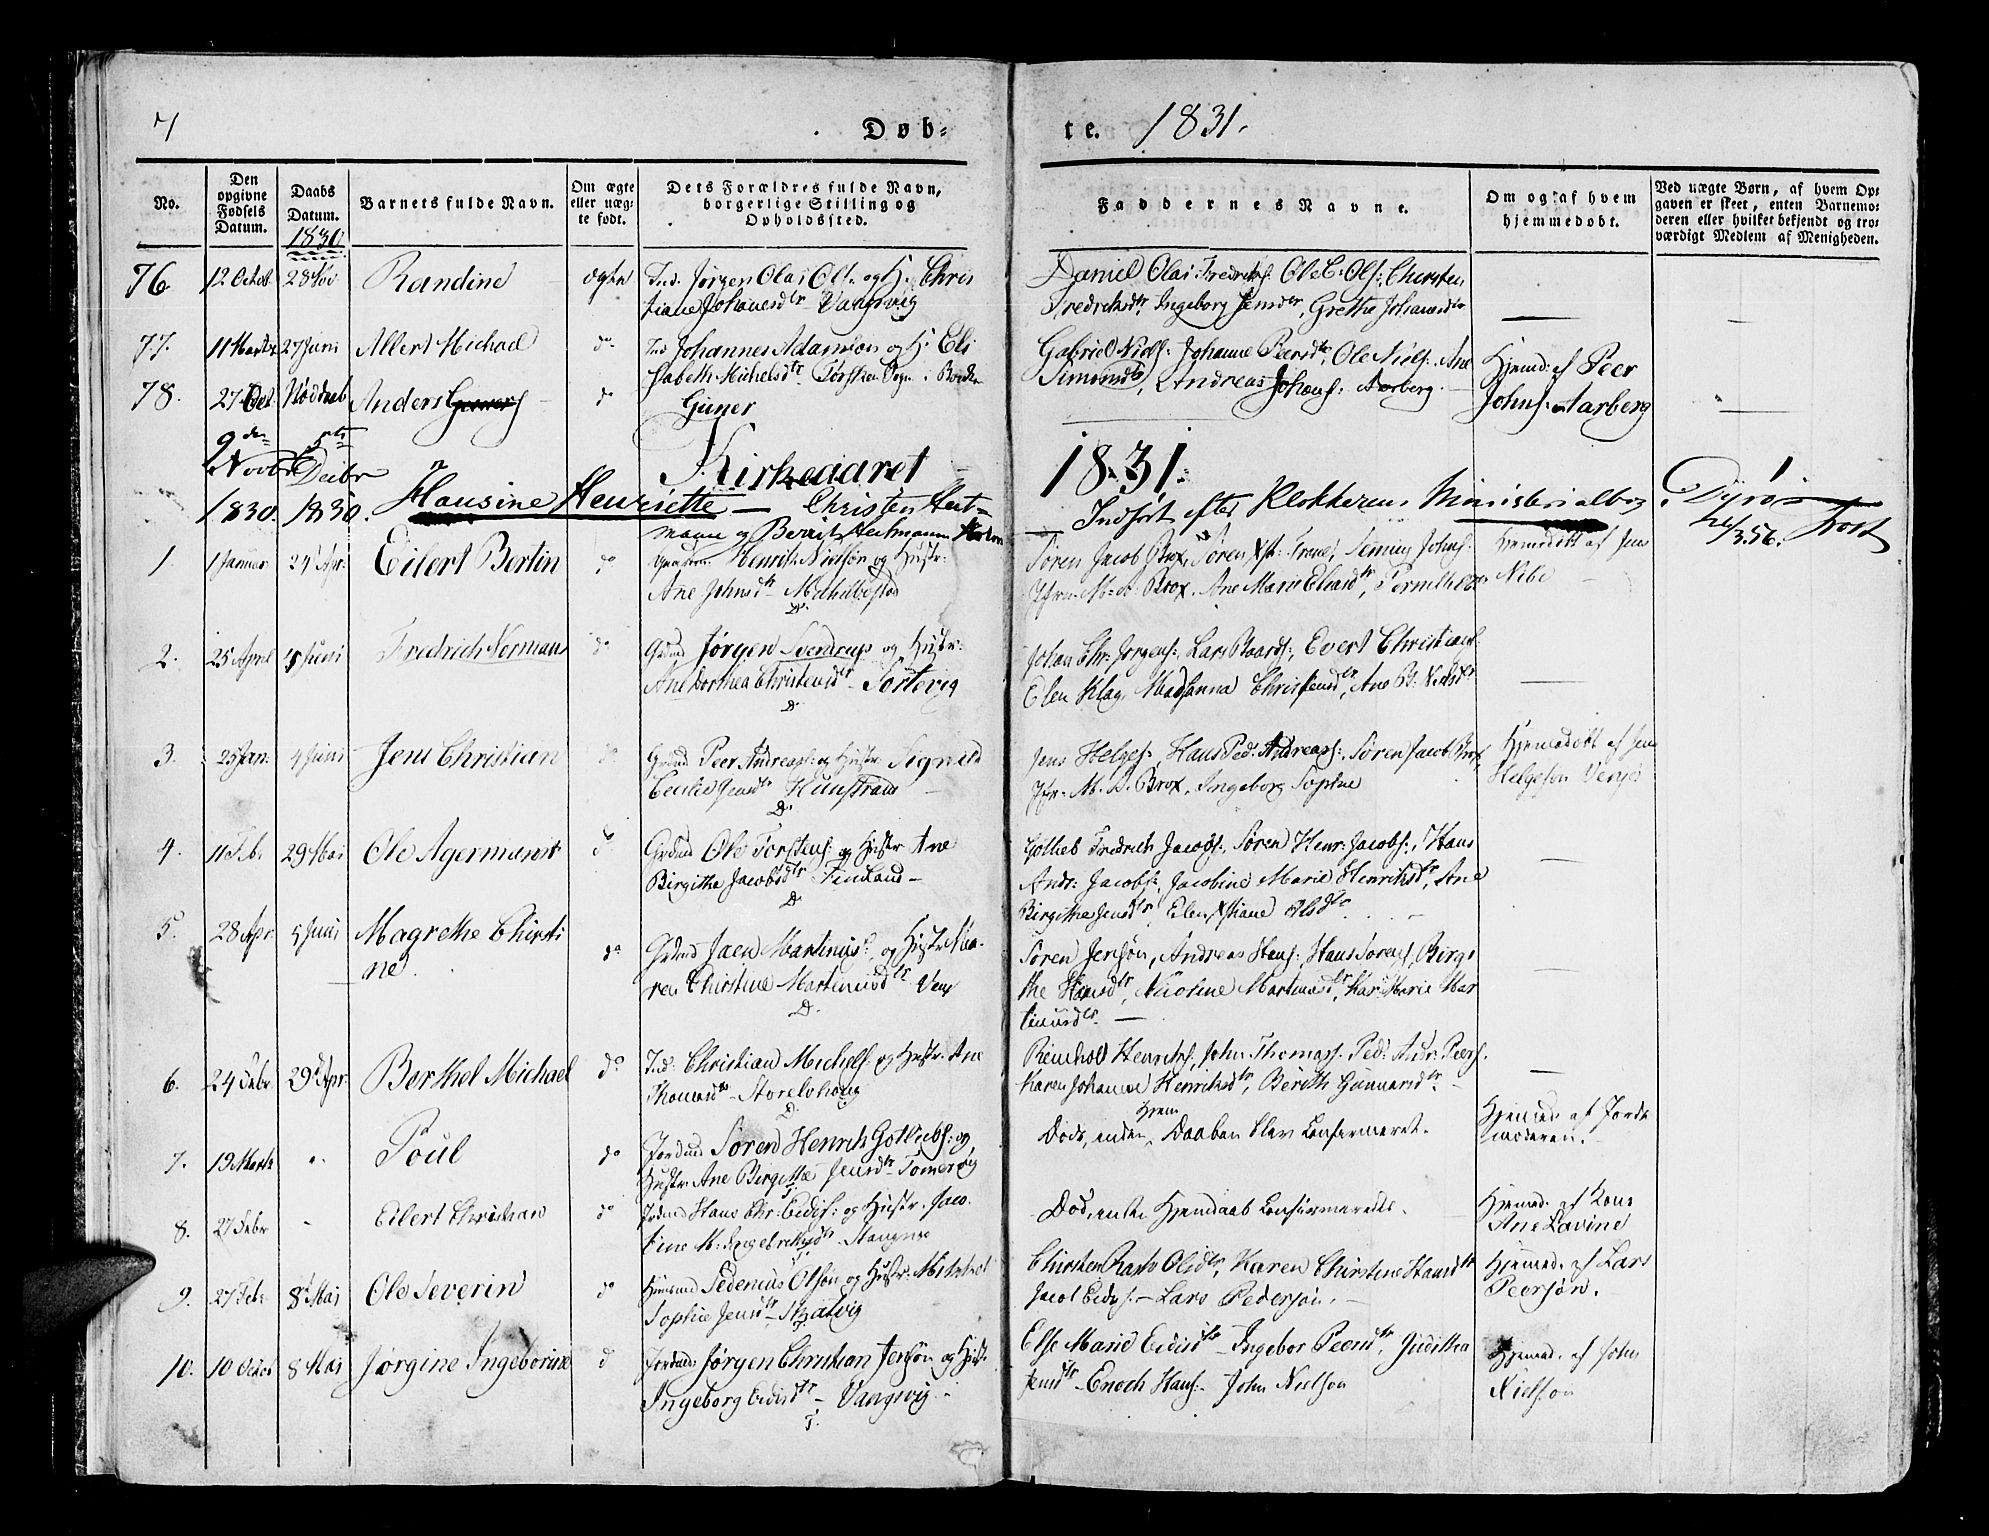 7
Døb-
te. 1831.
No.
Den opgivne Fødsels Datum.
Daabs Datum.
1830
Barnets fulde Navn.
Om ægte eller uægte født.
Dets Forældres fulde Navn, borgerlige Stilling og Opholdssted.
Faddernes Navne.
Om og af hvem hjemmedøbt.
Ved uægte Børn, af hvem Opgaven er skeet, enten Barnemoderen eller hvilket bekjendt og troværdigt Medlem af Menigheden.
76 12 Octob. 28 Nov Randine ægte Ind. Jørgen Olai Ols. og H. Chris
tiane Johanesdtr Vangsvig
Daniel Olai Fredriks. Ole C. Ols: Chirsten
Fredriksdtr, Ingeborg Jensdtr, Grethe Johanesdtr
77. 27 Juni Albert Michael do Ind Johannes Adamson og H. Eli
sabeth Michelsdtr
Gabriel Niels: Johanne Peersdtr, Ole Niels: Ane
Simonsdtr, Andreas Johans: Aarberg.
Hjemd. af Peer
Johns. Aarberg
78. 27 Oct. Anders do
Guner
9den Novbr 1830. 5te Decbr 1830.
Kirkeaaret 1831.
Hansine Henriette — Christen Hert-
mann og Berrit Hertmann
Indført efter Klokkerens Ministerialbog
Dyrø
24/3 56. Kost
1. 1 Januar 24 Apr: Eilert Bertin do Henrik Nielsøn og Hustr:
Ane Johnsdtr
D.
Søren Jacob Brox, Søren Xst: Trane, Johns.
Jfr. M. A. Brox, Ane Marie Eliasdtr,
Hjemedøbt af Jens
Nibe
2. 25 April 5 Juni Fredrich Norman do Grmd Jørgen Sverdrup og Hustr:
Ane Dorthea Christensdtr Sørlevig
D.
Johan Chr. Jørgens:, Lars Baards:, Evert Christians.
Elen Klag, Madsanna Christensdtr, Ane B: Nielsdtr
3. 25 Jan: 4 Juni Jens Christian do Grmd Peer Andreas: og Hustr Signild
Cecilie Jensdtr Kunstrand
D.
Jens Helges: Hans Ped: Andreas: Søren Jacob Brox,
Jfr. M. A. Brox, Ingeborg Sophie
Hjemedøbt af Jens
Helgesøn
4. 11 Feb. 29 Mai Ole Agermanst do Grmd Ole Torstens. og Hustr Ane
Birgithe Jacobsdtr Finland
D.
Gotlieb Fredrich Jacobs:, Søren Henr: Jacobs:, Hans
Andr: Jacobs:, Jacobine Marie Henriksdtr, Ane
Birgithe Jensdtr Elen Xstiane Olsdtr.
5. 28 Apr 5 Juni Magrethe Christi
ne. do Grmd Jaen Martinus:, og Hustr Ma-
ren Christine Martinusdtr
D.
Søren Jensøn, Andreas Hans:, Hans Sørens:, Birgi
the Hansdtr, Martinusdtr, Kar: Maria Mar
tinusdtr.
6. 24 Febr 29 Apr: Berthel Michael do Ind: Christian Michels: og Hustr: Ane
Thomasdtr
D.
Reinholt Henriks:, John Thomas: Ped: Andr: Peers:
Karen Johanne Henriksdtr, Berith Gunnarsdtr.
7. 19 Marts Poul do Jordmd Søren Henrich Gotliebs: og
Hustr Ane Birgitta Jensdtr Tømervig
T.
Døde, enden Hjem Daaben blev Confirmeret.
Hjemed. af Jorde
moderen.
8. 27 Febr Eilert Christian do Jordmd Hans Chr: Eidis: og Hustr. Jaco
bine M: Ingebrethsdtr Stangnes
T.
Død, enden Hjemdaab Confirmeredes.
Hjemed. af Kone
Ane Lavine
9. 27 Feb. 8 Mai Ole Severin do Sedenius Olsøn og Hustr: Mikkel
Sophie Jensdtr
T.
Chirsten Olsdtr, Karen Christine Hansdtr
Jacob Eidis. — Lars Pedersøn. —
Hjemed. af Lars
Peersøn.
10. 10 Octob 8 Mai Jørgine Ingeborine do Jordmd. Jørgen Christian Jensøn og Hustr
Ingeborg Eidisdtr — Vangsvig
T.
Else Marie Eidisdtr — Ingebor Peersdtr, Juditha
Jensdtr — Enoch Hans: John Nielsøn
Hjemed. af John
Nielsøn